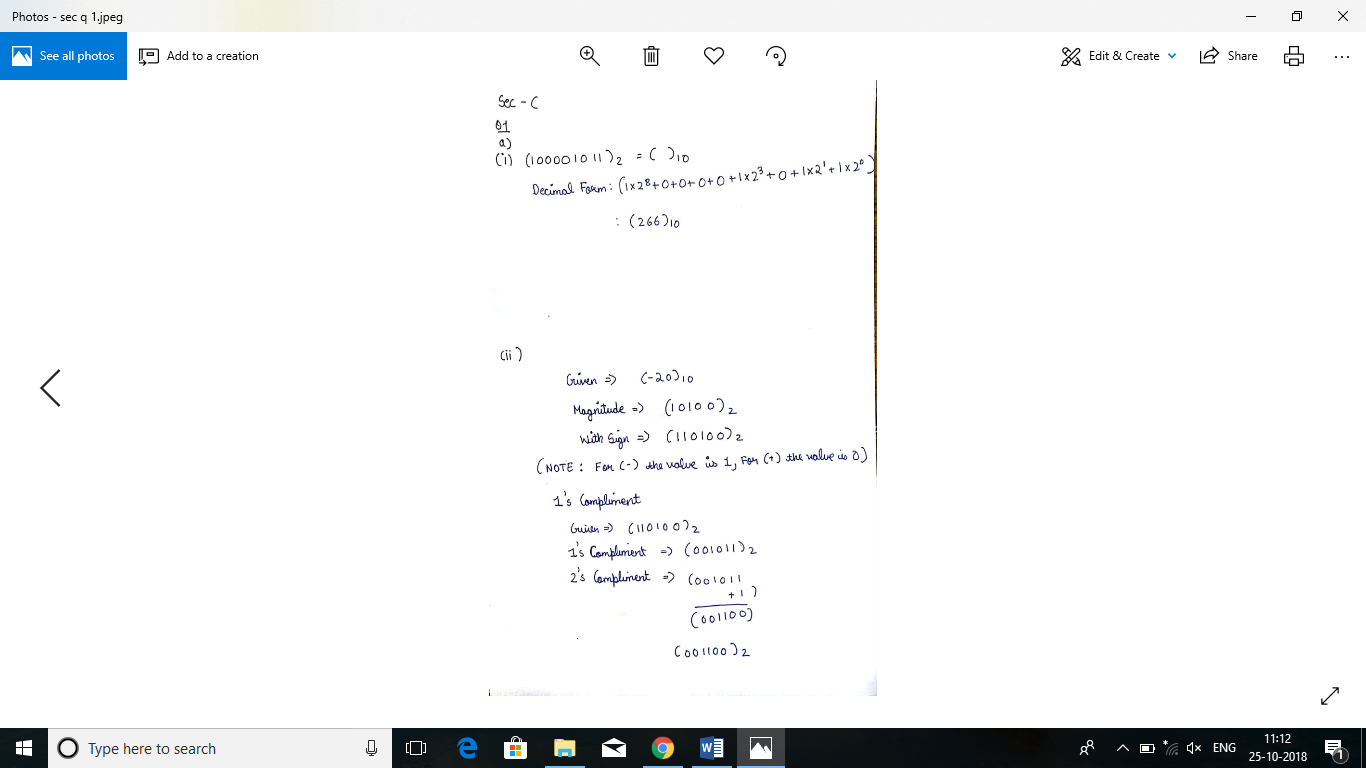 Photos - sec q 1.jpeg
See all photos
Add to a creation
Edit & Create
Share
Sec - C
Q1
a)
(i) (100001011)2 = ( )10
Decimal Form: (1x2^8+0+0+0+0+1x2^3+0+1x2^1+1x2^0)
: (266)10
(ii)
Given => (-20)10
Magnitude => (10100)2
With Sign => (110100)2
(NOTE: For (-) the value is 1, For (+) the value is 0)
1's Compliment
Given => (110100)2
1's Compliment => (001011)2
2's Compliment => (001011
+1)
(001100)
(001100)2
Type here to search
ENG
11:12
25-10-2018
1